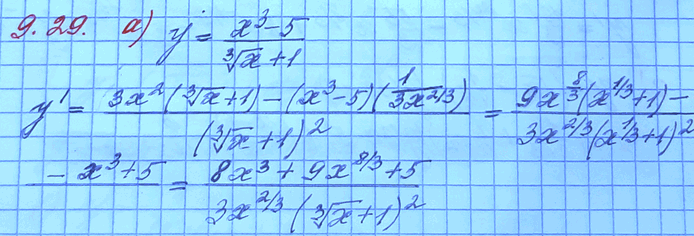 9.29. а) y = (x³ - 5) / (∛x + 1)
y' = (3x²(∛x + 1) - (x³ - 5)(1 / 3x^(2/3))) / (∛x + 1)² = (9x^(8/3)(x^(1/3) + 1) -) / (3x^(2/3)(x^(1/3) + 1)²)
(- x³ + 5) / = (8x³ + 9x^(8/3) + 5) / (3x^(2/3)(∛x + 1)²)